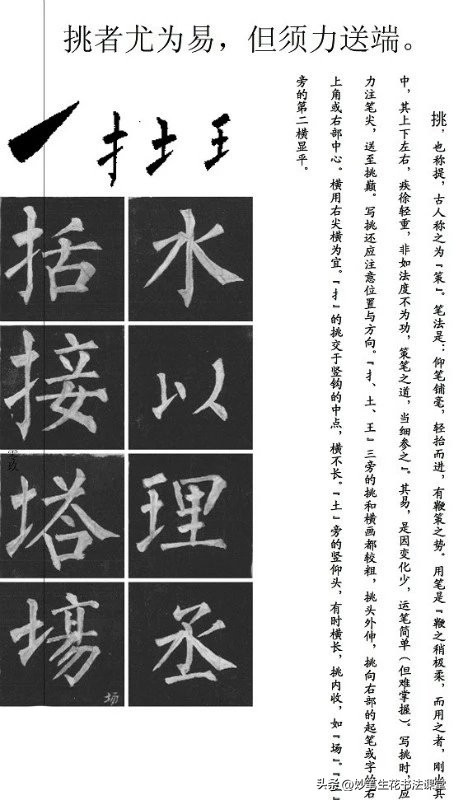 挑者尤为易，但须力送端。
挑，也称提，古人称之为『策』。笔法是：仰笔铺毫，轻抬而进，有鞭策之势。用笔是『鞭之稍极柔，而用之者，刚出其
中，其上下左右，疾徐轻重，非如法度不为功，策笔之道，当细参之』。其易，是因变化少，运笔简单（但难掌握）。写挑时，应
力注笔尖，送至挑巅。写挑还应注意位置与方向。『扌、土、王』三旁的挑和横画都较粗，挑头外伸，挑向右部的起笔或字的右
上角或右部中心。横用右尖横为宜。『扌』的挑交于竖钩的中点，横不长。『土』旁的竖仰头，有时横长，挑内收，如『场』。『王』
旁的第二横显平。
一 扌 土 王
括 水
接 以
塔 理
場 丞
场
头条 @妙笔生花书法课堂